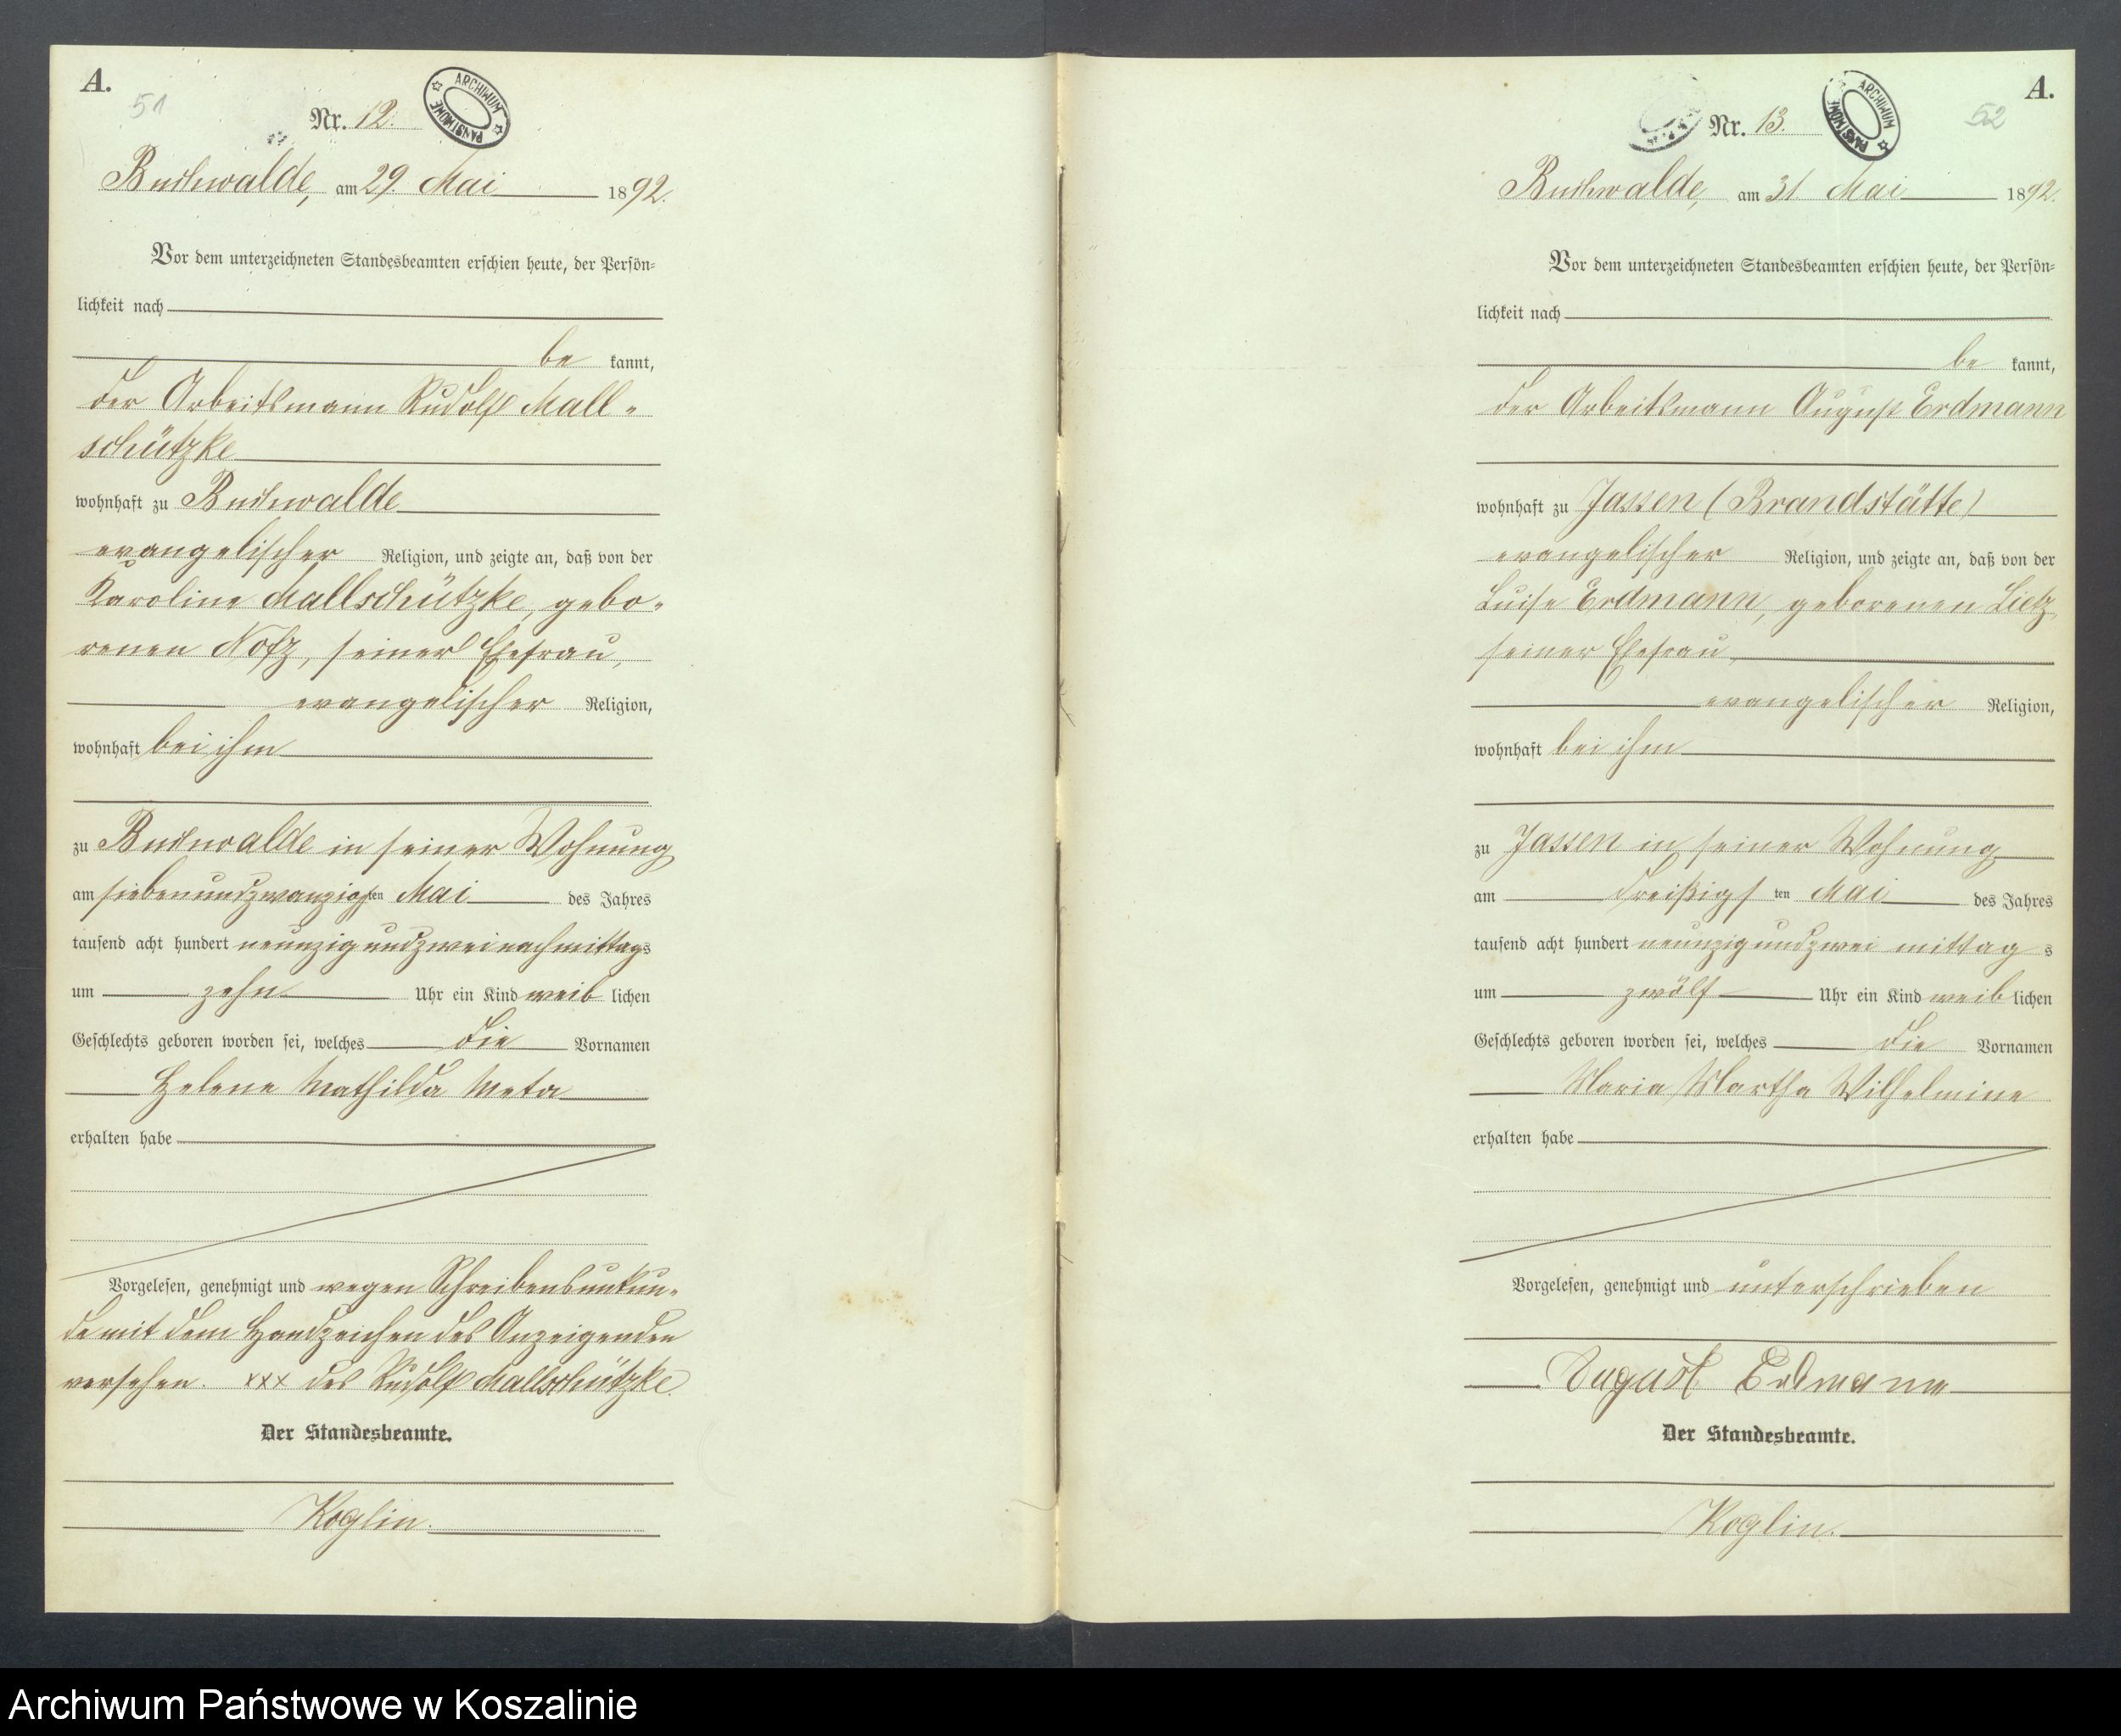 A.
51
Nr. 12.
ARCHIWUM PAŃSTWOWE
Buchwalde, am 29. Mai 1892.
Vor dem unterzeichneten Standesbeamten erschien heute, der Persön=
lichkeit nach
be kannt,
der Arbeitsmann Rudolf Mall-
schützke
wohnhaft zu Buchwalde
evangelischer Religion, und zeigte an, daß von der
Karoline Mallschützke, gebo-
renen Notz, seiner Ehefrau,
evangelischer Religion,
wohnhaft bei ihm
zu Buchwalde in seiner Wohnung
am siebenundzwanzigsten Mai des Jahres
tausend acht hundert neunzig und zwei nachmittags
um zehn Uhr ein Kind weib lichen
Geschlechts geboren worden sei, welches die Vornamen
Helene Mathilda Meta
erhalten habe
Vorgelesen, genehmigt und wegen Schreibensunkun-
de mit dem Handzeichen des Anzeigenden
versehen. xxx des Rudolf Mallschützke.
Der Standesbeamte.
Koglin.
A.
52
Nr. 13.
ARCHIWUM PAŃSTWOWE
Buchwalde, am 31 Mai 1892.
Vor dem unterzeichneten Standesbeamten erschien heute, der Persön=
lichkeit nach
be kannt,
der Arbeitsmann August Erdmann
wohnhaft zu Jassen (Brandstätte)
evangelischer Religion, und zeigte an, daß von der
Luise Erdmann, geborenen Lietz,
seiner Ehefrau,
evangelischer Religion,
wohnhaft bei ihm
zu Jassen in seiner Wohnung
am dreißigs ten Mai des Jahres
tausend acht hundert neunzig und zwei mittag s
um zwölf Uhr ein Kind weib lichen
Geschlechts geboren worden sei, welches die Vornamen
Maria Martha Wilhelmine
erhalten habe
Vorgelesen, genehmigt und unterschrieben
August Erdmann
Der Standesbeamte.
Koglin.
Archiwum Państwowe w Koszalinie